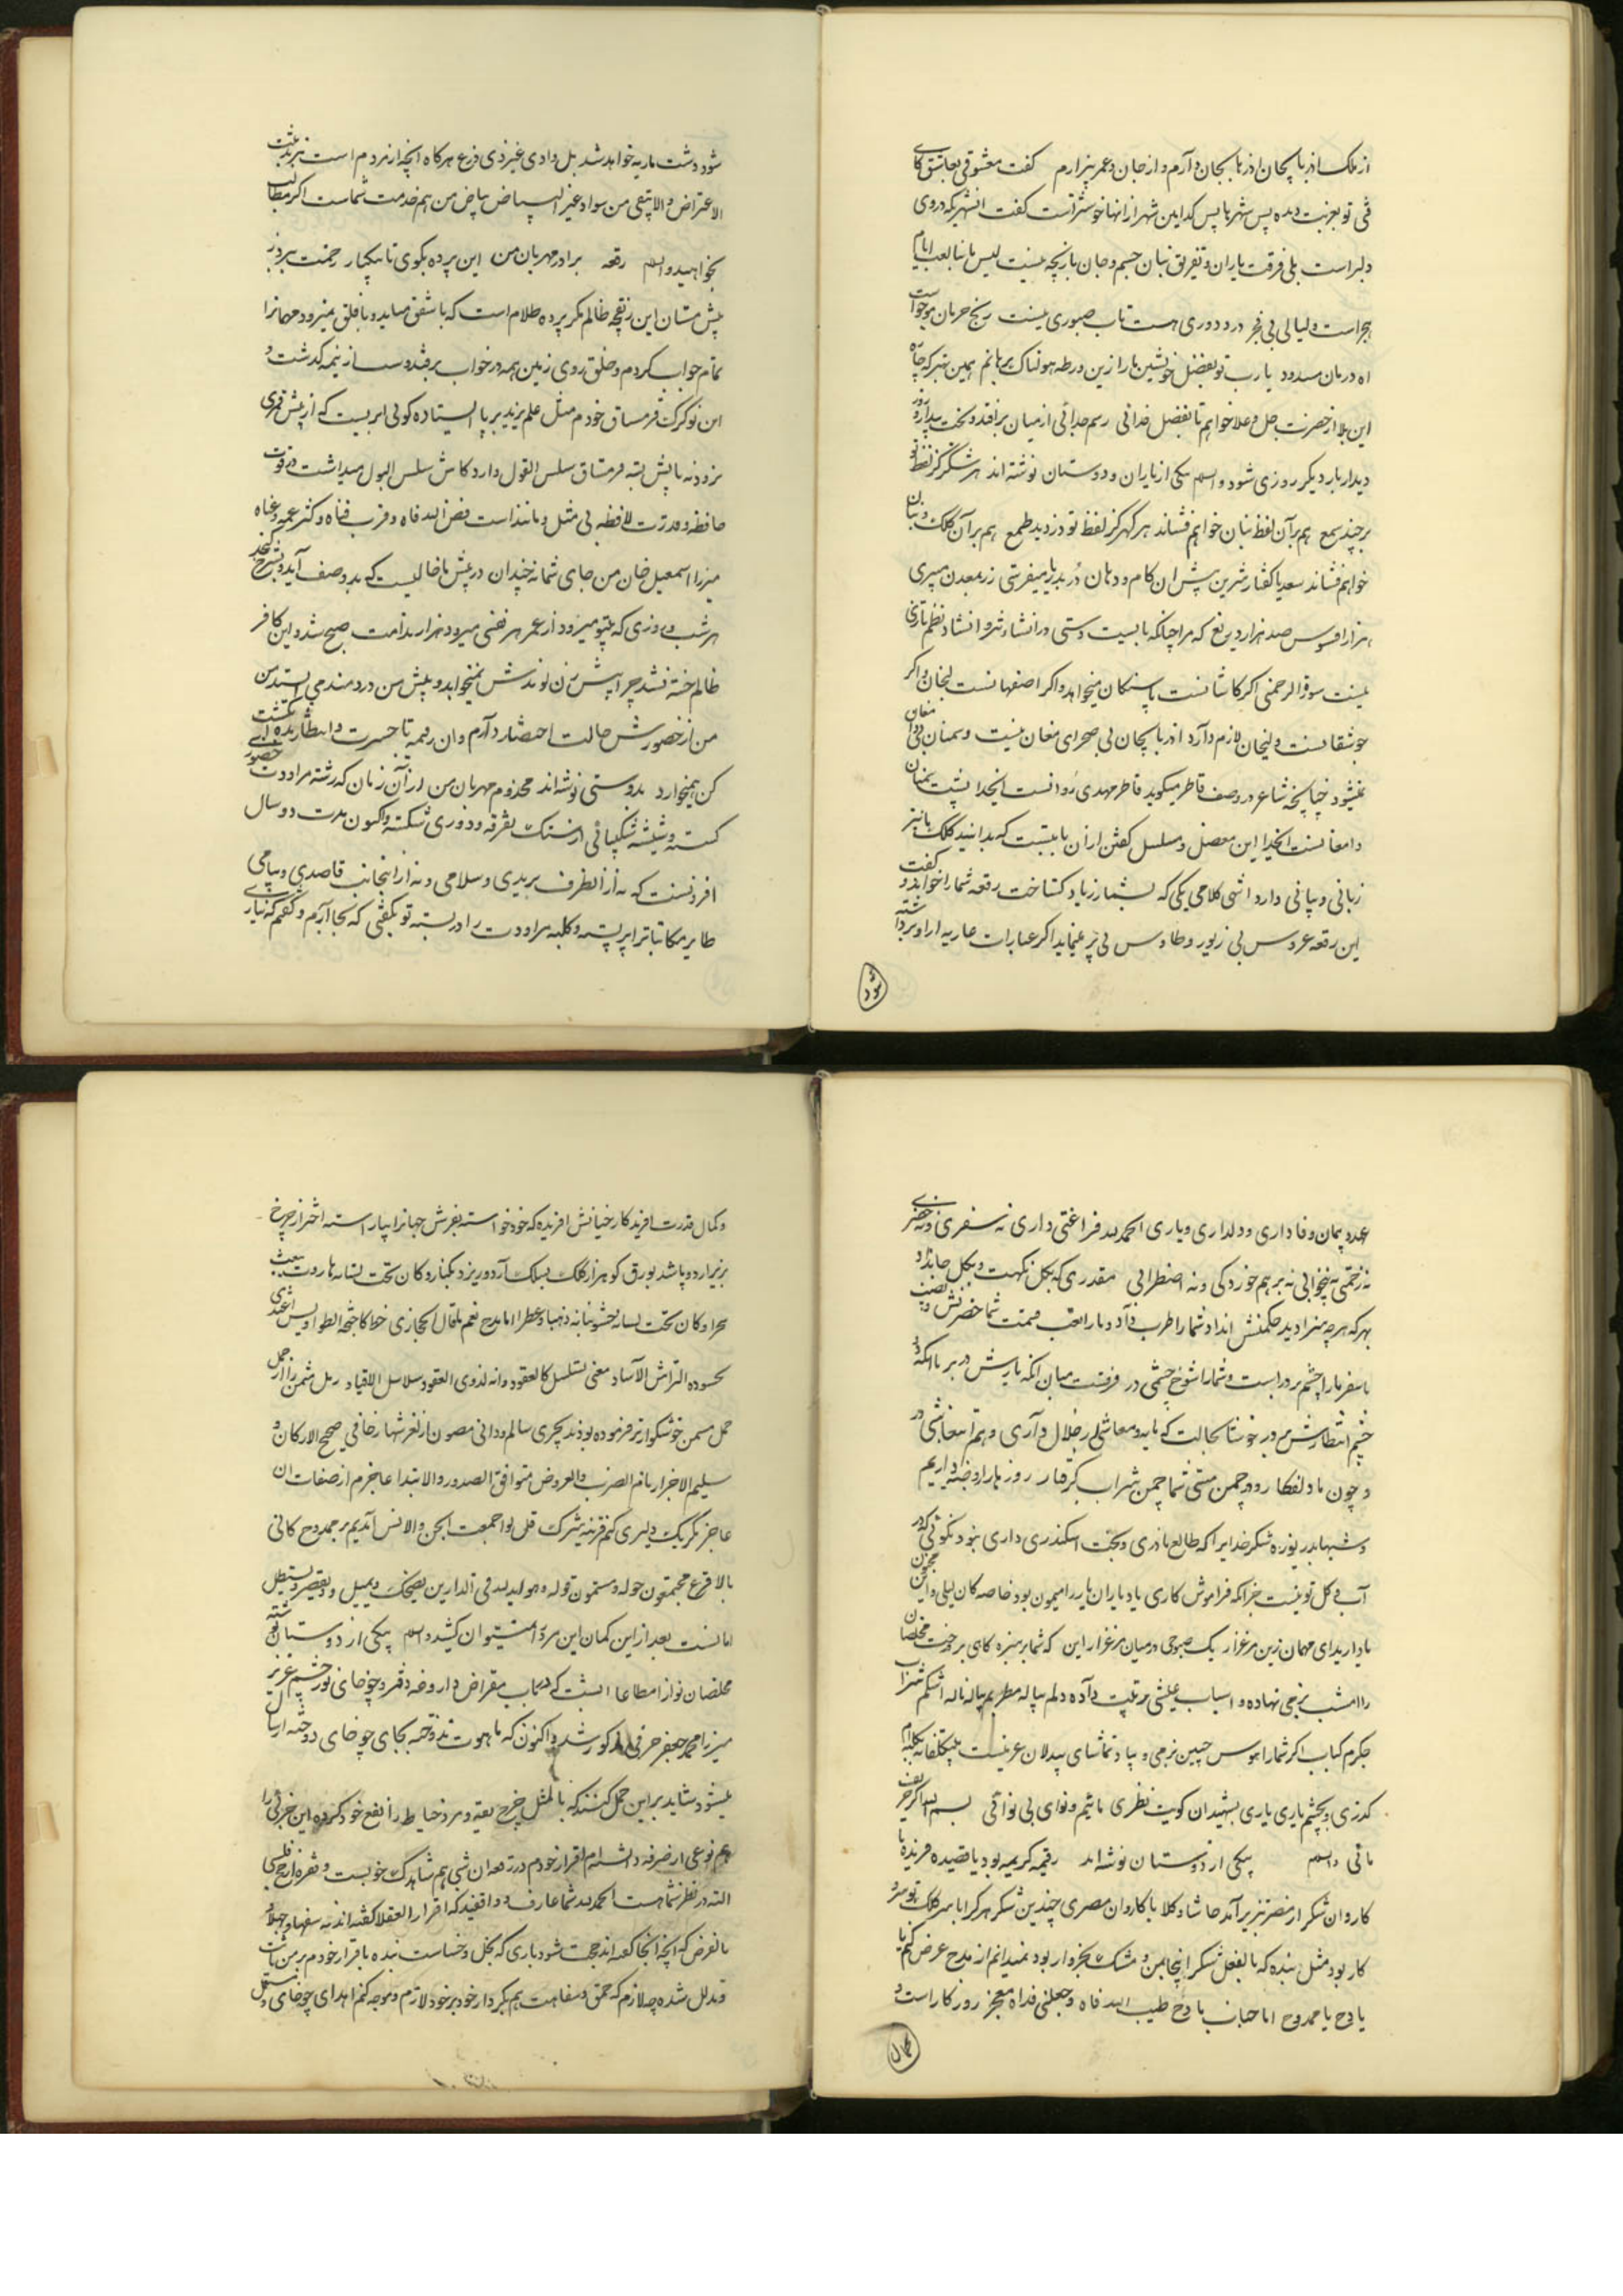 از ملک اذربایجان اذرها بجان دارم و از جان و عمر بیزارم کفت معشوقی بعاشق کای
فتی تو بغربت دیده بس شهرها پس کدامین شهر از انها خوشتر است کفت انشهریکه در وی
دلبر است بلی فرقت یاران و تفریق میان جسم و جان بازیچه نیست لیس ما بنا لعب ایام
هجر است و لیالی بی فجر درد دوری هست تاب صبوری نیست رنج حرمان موجود است
راه درمان مسدود یا رب تو بفضل خویشتن ما را زین ورطه هولناک برهانم همین بهتر که چاره
این بلا از حضرت جل و علا خواهم تا بفضل خدائی رسم جدائی از میان برافتد و بخت بیدار و روز
دیدار بار دیکر روزی شود والسلم یکی از یاران و دوستان نوشته اند هر شکر کز لفظ تو
برچیند سمع هم بر آن لفظ و بنان خواهم فشاند هر کهر کز لفظ تو دزدید طمع هم بر آن کلک و بنان
خواهم فشاند سعدیا کفتار شیرین پیش ان کام و دهان در بدریا میفرستی زر بمعدن میبری
هزار افسوس صد هزار دریغ که مرا چنانکه بایست دستی در انشاء نثر و انشاد نظم تازی
نیست سوق الرحمنی اکر کاشانست پاسنکان میخواهد و اکر اصفهانست لنجان و اکر
جوشقانست دلیجان لازم دارد اذربایجان بی صحرای مغان نیست و سمنان بی دامغان
نمیشود چنانچه شاعر در وصف قاطر میکوید قاطر مهدی روانست ایخدا پشت سمنان
دامغانست ایخدا این معضل و مسلسل کفتن از ان بابتست که بدانید کلک ما نیز
زبانی و بیانی دارد انتهی کلامی یکی که بشما زیاد کستاخت رقعه شما را خواند و کفت
این رقعه عروس بی زیور و طاوس بی پر مینماید اکر عبارات عاریه ارا و برداشته
شود
شود دشت ماریه خواهد شد بل وادی غیر ذی زرع هرکاه انچه از مردم است نیز به نیت
الاعتراض و الا تبقی من سواد غیر البیاض بیاض من هم خدمت شماست اکر مطالب
بخواهید والسلم رقعه برادر مهربان من این پرده بکوی تا بیکبار زحمت ببرد ز
پیش مستان این زنقحبه ظالم مکر پرده ظلام است که با شفق میاید و با فلق میرود مهمانرا
تمام جواب کردم و خلق روی زمین همه در خواب برفتند و ساز نیمه کدشت و
این نوکرک قرمساق خودم مثل علم یزید برپا ایستاده کوئی ابریست که از پیش قمری
نرود نه پایش بسته قرمساق سلس القول دارد کاش سلس البول میداشت در قوت
حافظه و قدرت لافظه بی مثل و مانند است فض الله فاه و قرب فناه و کثر عمه و غناه
میرزا اسمعیل خان من جای شما نه چندان در پیش ما خالیست که بوصف آید و بشرح کنجد
هر شب و روزی که بیتو میرود از عمر هر نفسی میرود هزار ندامت صبح شد و این کافر
ظالم خسته نشد چرا پیش زن نوندش نمیخوابد و پیش من دردمند می ایستد من
من از حضورش حالت احتضار دارم و ان رقمه تا حسرت و انتظار بنده
کن نمیخوارد بدوستی نوشته اند مخدوم مهربان من از آن زمان که رشته مراودت حضوری
کسسته و شیشه شکیبائی از سنک تفرقه و دوری شکسته و اکنون مدت دو سال
افزونست که نه از انطرف بریدی و سلامی و نه از اینجانب قاصدی و پیامی
طایر مکاتباترا پر بسته و کلبه مراودت را در بسته تو بکفتی که بجا آرم و کفتم که نیاری
عهد و پیمان وفاداری و دلداری و یاری الحمدلله فراغتی داری نه سفری و نه حضری
نه زحمتی نه بیخوابی نه برهم خوردکی و نه اضطرابی مقدری که بکل نکهت و بکل جان داد
بهر که هر چه سزا دید حکمتش انداد شما را طرب داد و ما را تعب قسمت شما حضر شد و نصیب
ما سفر ما را چشم بر در است و شما را شوخ چشمی در بر فرقست میان انکه یارش در بر با انکه دو
چشم انتظارش بر در خوشا بحالت که مایه و معاشی از حلال داری و هم انتعاشی در
و چون ما دلفکار و در چمن مستی شما چمن شراب کرفتار روزها را روضه داریم
و شبها بدریوزه شکر خدایرا که طالع نادری و بخت اسکندری داری نبود نکوئی که در
آب و کل تو نیست جز انکه فراموش کاری یاد یاران یار را میمون بود خاصه کان لیلی و این مجنون
یاد ارید ای مهمان زین مرغزار یک صبوحی در میان مرغزار این که شما بر سبزه کاهی بر درخت مخلصان
را امشب بزمی نهاده و اسباب عیشی مرتب داده دلم پیاله مطربم ناله اشکم شراب
جکرم کباب اکر شما را هوس چنین بزمی و بیاد تماشای بیدلان عزمیست بی تکلفانه بکلبه ام
کذری و بچشم یاری بشهیدان کویت نظری مائیم و نوای بی نوائی بسم الله اکر حریف
مائی والسلم یکی از دوستان نوشته اند رقیمه کریمه بود یا قصیده فریده یا
کاروان شکر از مصر بتبریز آمد حاشا و کلا با کاروان مصری چندین شکر هرکرا با سر کلک تو سر و
کار بود مثل بنده که بالفعل شکر اینجا بمن و مشک بخروار بود نمیدانم از مدح عرض کنم یا
مادح یا ممدوح اما جناب مادح طیب الله فاه و جعلنی فداه معجز روزکار است و
کمال
و کمال قدرت افریدکار خیانش افریده که خود خواسته بفرش جهانرا بیاراسته اختر از چرخ
بزیر ارد و پاشد بورق کو هزار کلک بسلک آرد و ریزد بکنار و کان تحت لسانه هاروت ینفث
سحرا و کان تحت لسانه ذهبا و عطرا اما مدح فنعم ما قال الحجازی خطا کاجنحه الطواویس اغتدی
محسوده الترائش الآساد معنی تسلسل کالعقود و انه لذوی العقود سلاسل الاقیاد رمل مثمن را از رمل
مسمن خوشکوارتر فرموده بودند بحری سالم و دانی مصون از لغزشها زحافی صحیح الارکان و
سلیم الاجزا تام الضرب و العروض متوافق الصدور و الابتدا عاجزم از صفات ان
عاجز مکر یک دلیری کنم قرینه شرک قل لو اجتمعت الجن و الانس آمدیم بر ممدوح کانی
بالاقرع مجتمعون حوله و یستمعون قوله و هو لید لله فی الدارین یضحک و یمیل و یقصر و یستطیل
امانست بعد از این کمان این مرد را نمیتوان کشید والسلم یکی از دوستان نوشته
مخلصان نوازا مطاعا انست که در باب مقراض داروغه دفتر و چوخای نور چشم عزیز
میرزا محمد جعفر حرفی مذکور شد و اکنون که ماهوت نذوحمه بجای چوخای دوخته ارسال
میشود شاید بر این حمل کنند که بالمثل خرج بقیه و مزد خیاط را نفع خود کرده این جزئی را
هم نوعی از صرفه دانسته ام اقرار خودم در رقعه ان شبی هم شاهدک خوبست و فقره از خ قلبی
البته در نظر شما هست الحمدلله شما عارف و واقفید که اقرار العقلا کفته اند نه سفها و جهلا
بالفرض که انچه انجا کفته اند حجت شود باری که بخل و خساست بنده باقرار خودم بر من ثابت
و مدلل شده چه لازم که حمق و سفاهت هم بکردار خود بر خود لازم و موجه کنم اهدای چوخای مستعمل